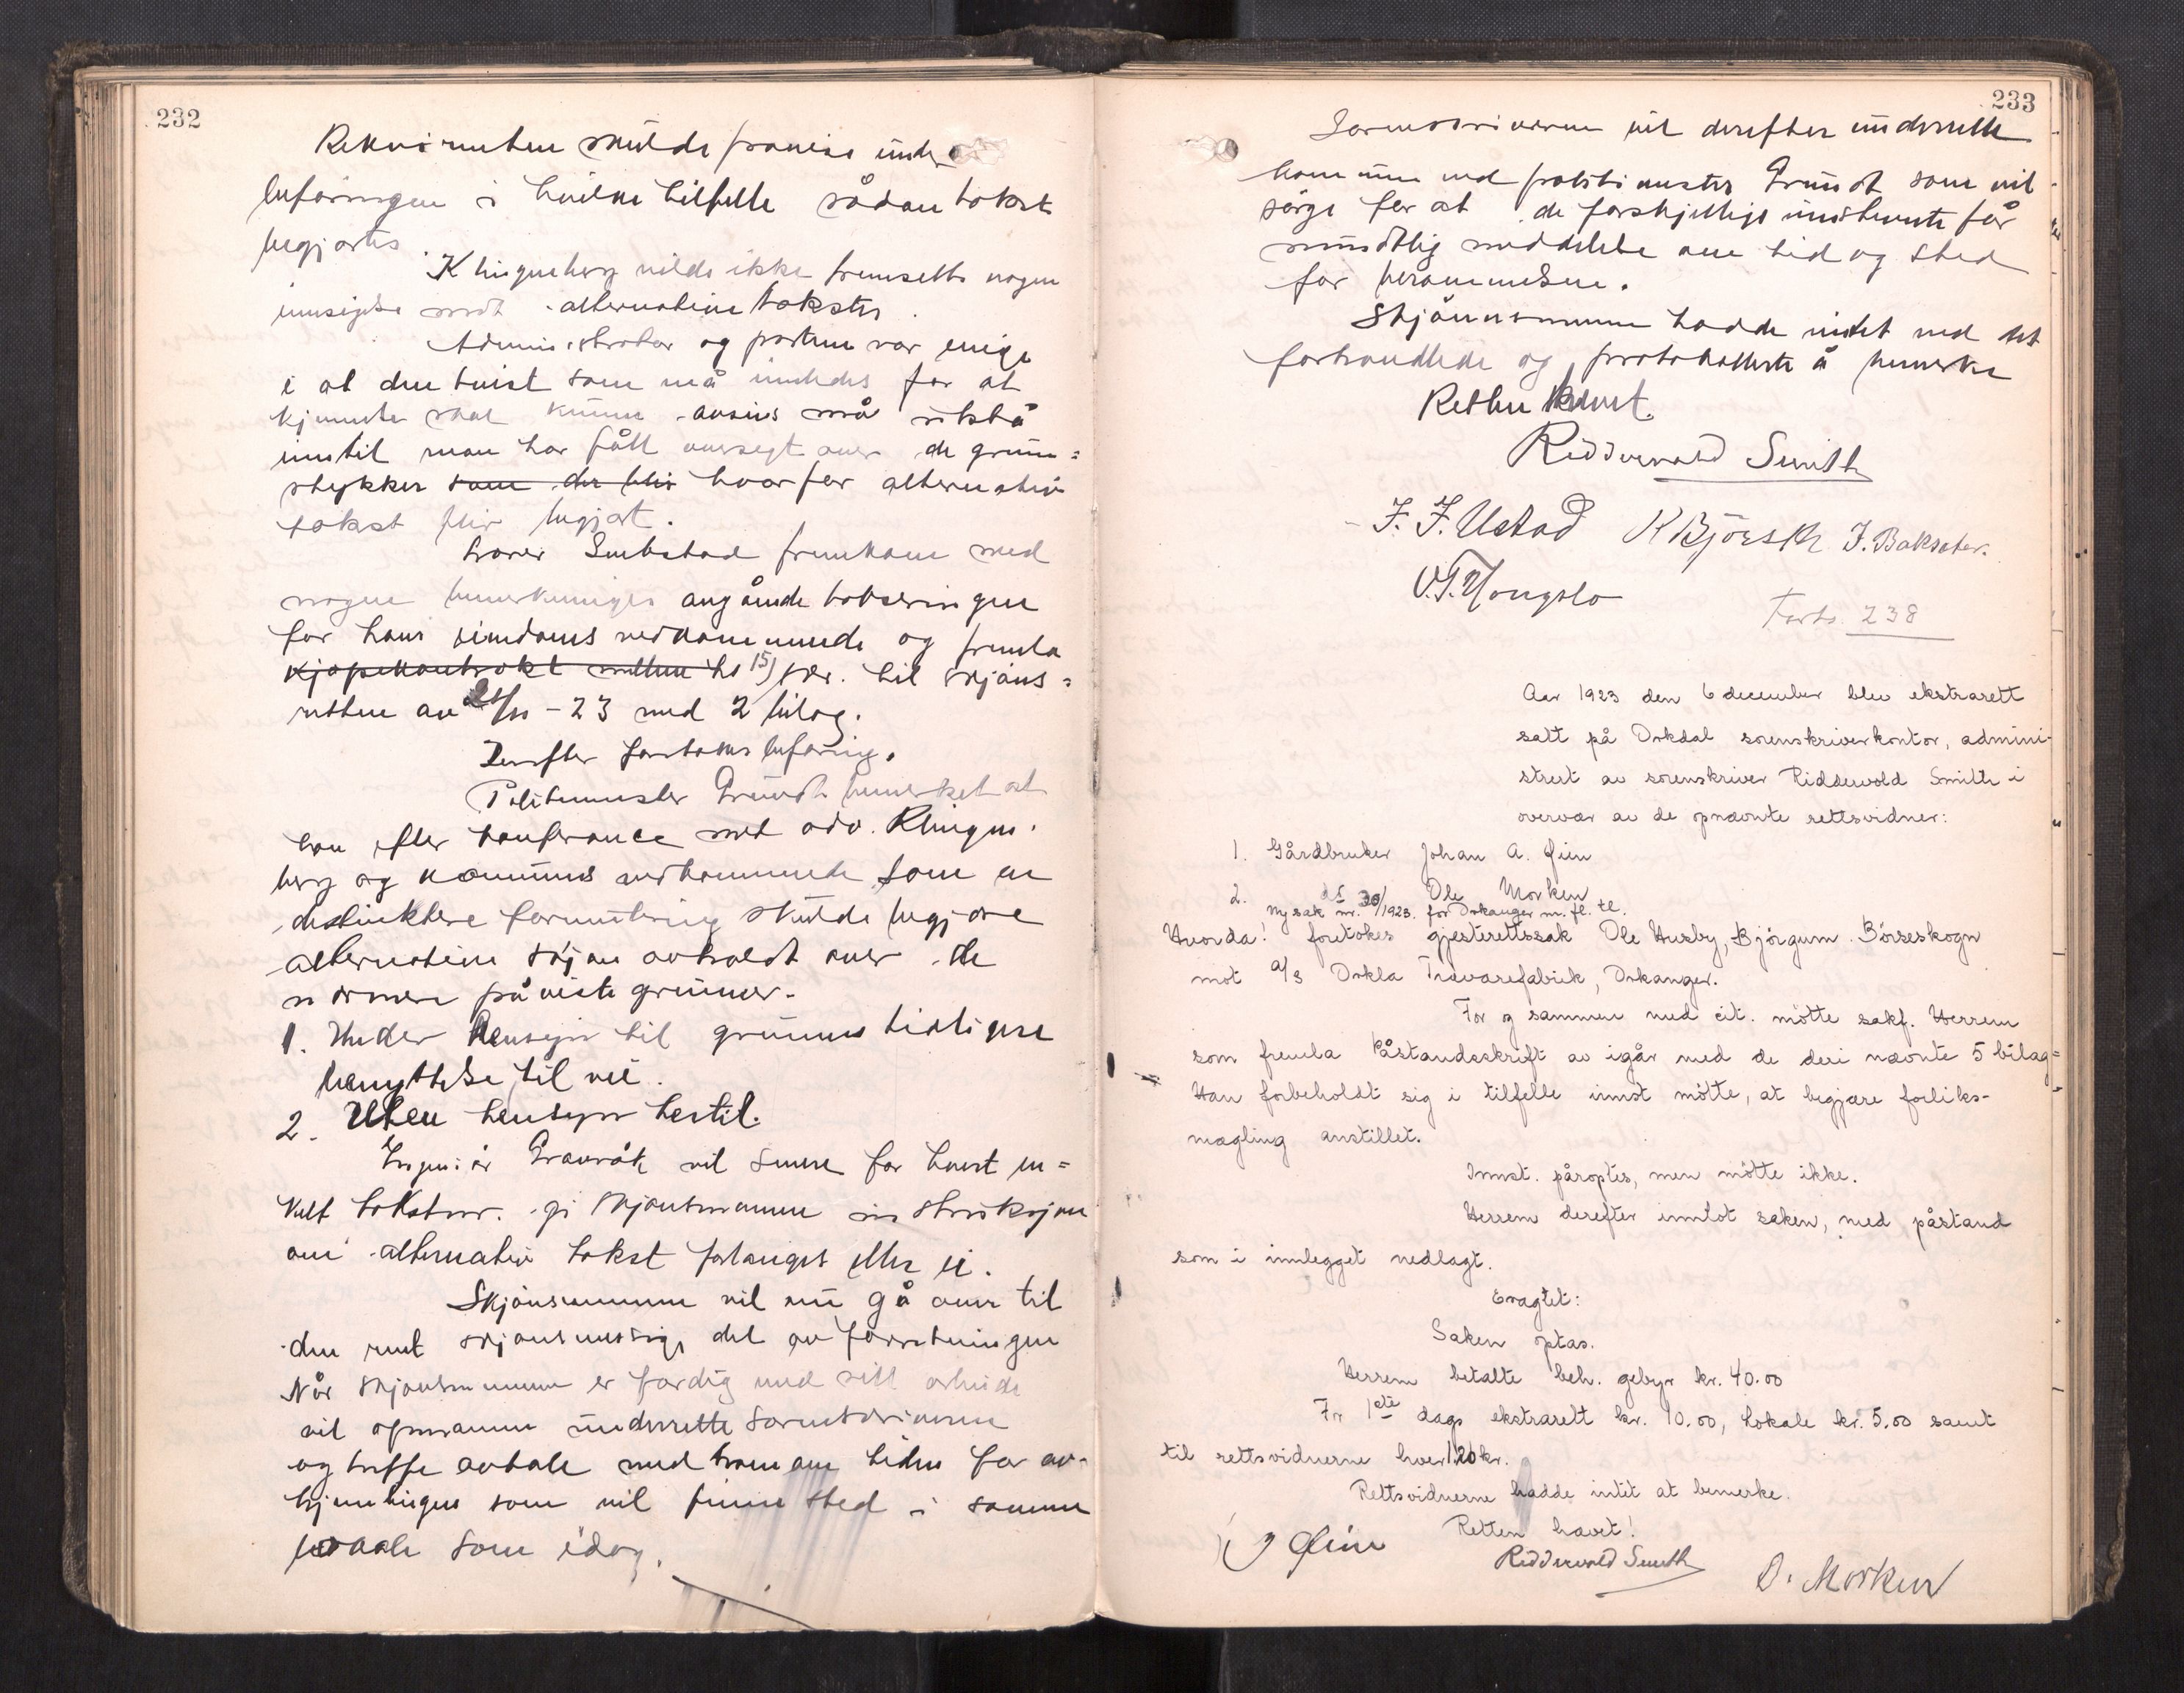 232
Rekvirenten skulde påvise under
befaringen i hvilke tilfelle sådan takst
begjærtes.
Klingenberg vilde ikke fremsette nogen
innsigelse mot alternative takster.
Administrator og partene var enige
i at den tvist som må innledes for at
kjennelse skal kunne avsies må utstå
inntil man har fått oversigt over de grunn=
stykker som der blir hvorfor alternativ
takst blir begjært.
Lærer Småstad fremkom med
nogen bemerkninger angående takseringen
for hans eiendoms vedkommende og fremla
kjøpekontrakt mellem ham 15) skr. til skjøns=
retten av 21/11-23 med 2 bilag.
Derefter foretokes befaring.
Politimester Grundt bemerket at
han efter konferance med adv. Klingen-
berg og kommunens vedkommende som en
distinktere formulering skulde begjære
alternative skjøn avholdt over de
nærmere påviste grunner.
1. Under hensyn til grunnens tidligere
benyttelse til vei.
2. Uten hensyn hertil.
Ingeniør Gravråk vil senere for hvert en=
kelt takstnr. gi skjønsmennene instruksjon
om alternativ takst forlanges eller ei.
Skjønsmennene vil nu gå over til
den rent skjønsmessige del av forretningen
Når skjønsmennene er færdig med sitt arbeide
vil opmannen underrette sorenskriveren
og treffe avtale med ham om tiden for av-
hjemlingen som vil finne sted i samme
lokale som idag.
233
Sorenskriveren vil derefter underrette
kommunen ved politimester Grundt som vil
sørge for at de forskjellige innstevnte får
mundtlig meddelelse om tid og sted
for berammelsen.
Skjønnsmennene hadde intet ved det
forhandlede og protokollerte å bemerke
Retten hævet.
Riddervold Smith
J. J. Ustad K Bjørseth J. Baksæter.
O. T. Mongslo
Forts. 238
Aar 1923 den 6 december blev ekstrarett
satt på Orkdal sorenskriverkontor, admini-
strert av sorenskriver Riddervold Smith i
overvær av de opnævnte rettsvidner:
1. Gårdbruker Johan A. Øien
2. do Ole Morken
Ny sak nr. 30/1923. for Orkanger m. fl. tl.
Hvorda! foretokes gjesterettssak Ole Husby, Bjørgum Børseskogn
mot A/s Orkla Trævarefabrik, Orkanger.
For og sammen med cit. møtte sakf. Herrem
som fremla påstandsskrift av igår med de deri nævnte 5 bilag=
Han forbeholdt sig i tilfelle innst møtte, at begjære forliks-
mægling anstillet.
Innst. påroptes, men møtte ikke.
Herrem derefter innlot saken, med påstand
som i innlegget nedlagt.
Eragtet:
Saken optas.
Herrem betalte beh. gebyr kr. 40.00
For 1ste dags ekstrarett kr. 10.00, lokale kr. 5.00 samt
til rettsvidnerne hver 1.20 kr.
Rettsvidnerne hadde intet at bemerke.
Retten hævet!
J Øien Riddervold Smith O. Morken